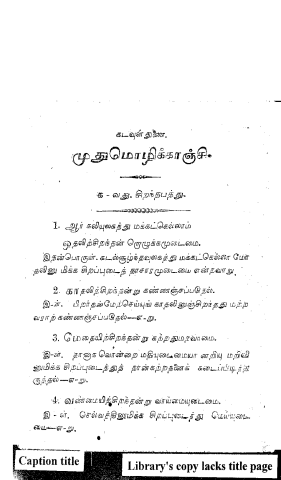 கடவுள் துணை.
முதுமொழிக்காஞ்சி.
க - வது. சிறந்தபத்து.
1. ஆர் கலியுலகத்து மக்கட்கெல்லாம்
ஓதலிற்சிறந்தன் றொழுக்கமுடைமை.
இதன்பொருள். கடல்சூழ்ந்தவுலகத்து மக்கட்கெல்லா மோ
தலினு மிக்க சிறப்புடைத் தாசாரமுடைமை என்றவாறு
2. காதலிற்சிறந்தன்று கண்ணஞ்சப்படுதல்.
இ-ள். பிறர்தன்மேற்செய்யுங் காதலினுஞ்சிறந்தது மற்ற
வராற் கண்ணஞ்சப்படுதல்—எ-று.
3. மேதையிற்சிறந்தன்று கற்றதுமறவாமை.
இ-ள். தானாக வொன்றை மதியுடைமையா னறியு மறிவி
னுமிக்க சிறப்புடைத்துத் தான்கற்றதனைக் கடைப்பிடித்தி
ருந்தல்—எ-று.
4. வண்மையிற்சிறந்தன்று வாய்மையுடைமை.
இ - ள். செல்வத்தினுமிக்க சிறப்புடைத்து மெய்யுடை
மை—எ-று.
Caption title
Library's copy lacks title page